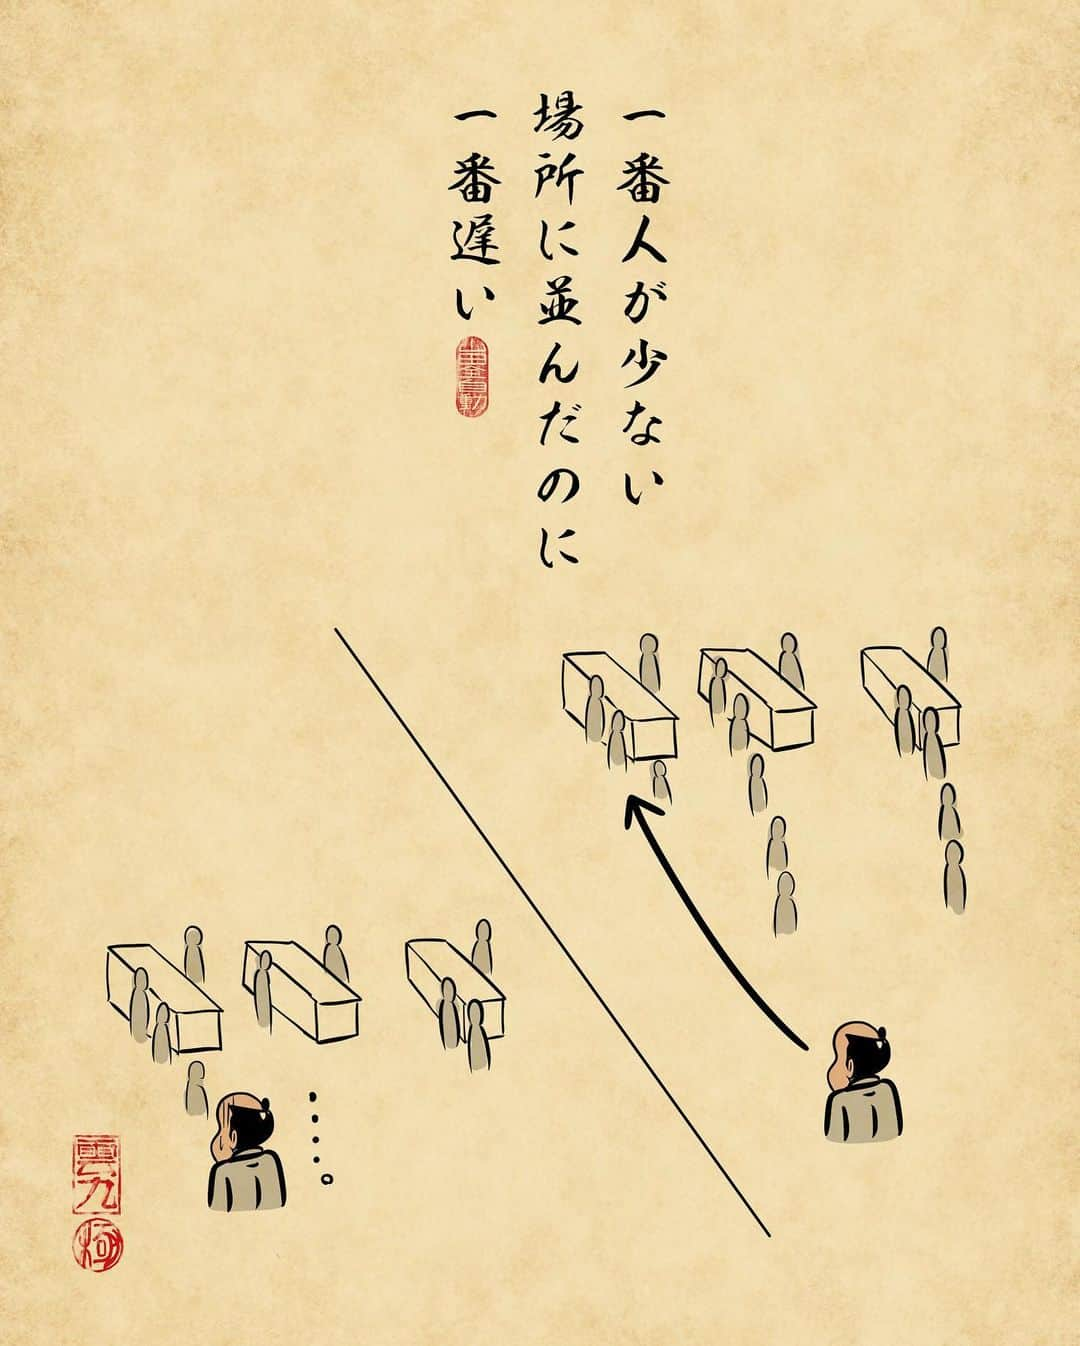 一番人が少ない
場所に並んだのに
一番遅い
····。
雲九
極